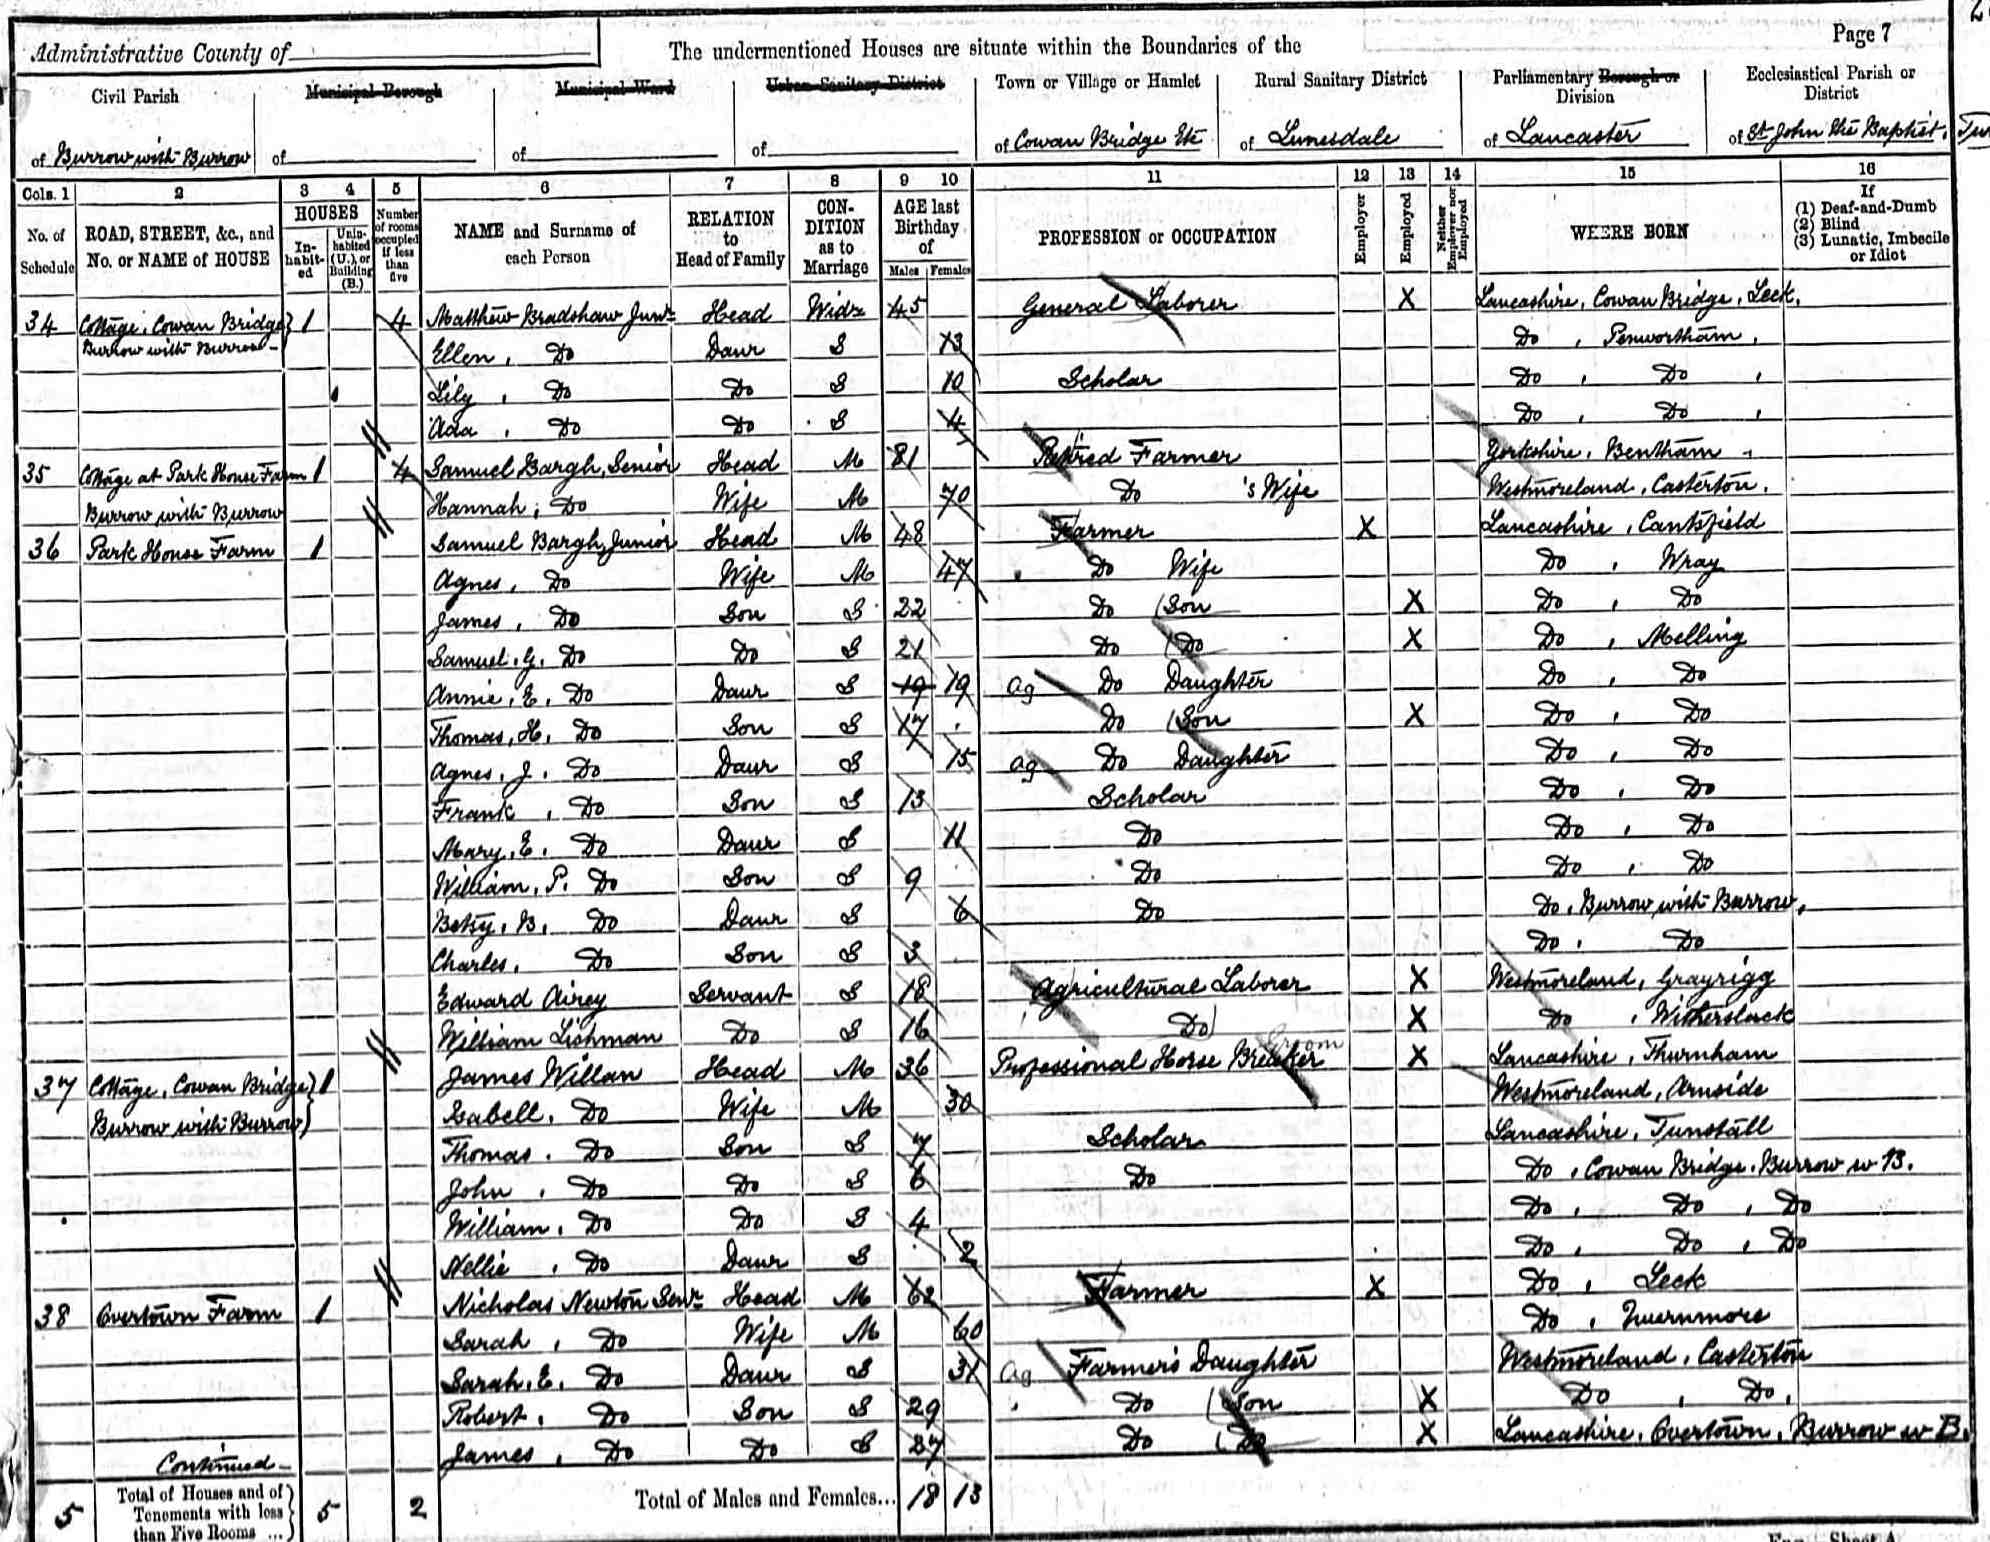 Administrative County of
The undermentioned Houses are situate within the Boundaries of the
Page 7
Civil Parish
Municipal Borough
Municipal Ward
Urban Sanitary District
Town or Village or Hamlet
Rural Sanitary District
Parliamentary Borough or Division
Ecclesiastical Parish or District
of Burrow with Burrow of of of of Cowan Bridge Etc of Lunesdale of Lancaster of St John the Baptist,
Cols. 1 2 3 4 5 6 7 8 9 10 11 12 13 14 15 16
No. of Schedule
ROAD, STREET, &c., and No. or NAME of HOUSE
HOUSES
In-habit-ed
Unin-habited (U.), or Building (B.)
Number of rooms occupied if less than five
NAME and Surname of each Person
RELATION to Head of Family
CON-DITION as to Marriage
AGE last Birthday of
Males Females
PROFESSION or OCCUPATION
Employer
Employed
Neither Employer nor Employed
WHERE BORN
If
(1) Deaf-and-Dumb
(2) Blind
(3) Lunatic, Imbecile or Idiot
34 Cottage, Cowan Bridge 1 4 Matthew Bradshaw Junr Head Widr 45 General Laborer X Lancashire, Cowan Bridge, Leck,
Burrow with Burrow - Ellen, Do Daur S 13 Do, Penwortham,
Lily, Do Do S 10 Scholar Do, Do,
Ada, Do Do S 4 Do, Do,
35 Cottage at Park House Farm 1 4 Samuel Bargh, Senior Head M 81 Retired Farmer Yorkshire, Bentham
Burrow with Burrow Hannah, Do Wife M 70 Do 's Wife Westmoreland, Casterton.
36 Park House Farm 1 Samuel Bargh, Junior Head M 48 Farmer X Lancashire, Cantsfield
Agnes, Do Wife M 47 Do Wife Do, Wray
James, Do Son S 22 Do Son X Do, Do
Samuel, G. Do Do S 21 Do Do X Do, Melling
Annie, E. Do Daur S 19 19 Ag Do Daughter Do, Do
Thomas, H. Do Son S 17 Do Son X Do, Do
Agnes, J. Do Daur S 15 Ag Do Daughter Do, Do
Frank, Do Son S 13 Scholar Do, Do
Mary, E. Do Daur S 11 Do Do, Do
William, P. Do Son S 9 Do Do, Do
Betsy, B. Do Daur S 6 Do Do, Burrow with Burrow,
Charles, Do Son S 3 Do, Do
Edward Airey Servant S 18 Agricultural Laborer X Westmoreland, Grayrigg
William Lishman Do S 16 Do X Do, Witherslack
Groom
37 Cottage, Cowan Bridge 1 James Willan Head M 36 Professional Horse Breaker X Lancashire, Thurnham
Burrow with Burrow Isabell, Do Wife M 30 Westmoreland, Arnside
Thomas, Do Son S 7 Scholar Lancashire, Tunstall
John, Do Do S 6 Do Do, Cowan Bridge, Burrow w B.
William, Do Do S 4 Do, Do, Do
Nellie, Do Daur S 2 Do, Do, Do
38 Overtown Farm 1 Nicholas Newton Senr Head M 62 Farmer X Do, Leck
Sarah, Do Wife M 60 Do, Quernmore
Sarah, E. Do Daur S 31 Ag Farmer's Daughter Westmoreland, Casterton
Robert, Do Son S 29 Do Son X Do, Do,
Continued - James, Do Do S 27 Do Do X Lancashire, Overtown, Burrow w B.
5 Total of Houses and of Tenements with less than Five Rooms ... 5 2 Total of Males and Females... 18 13